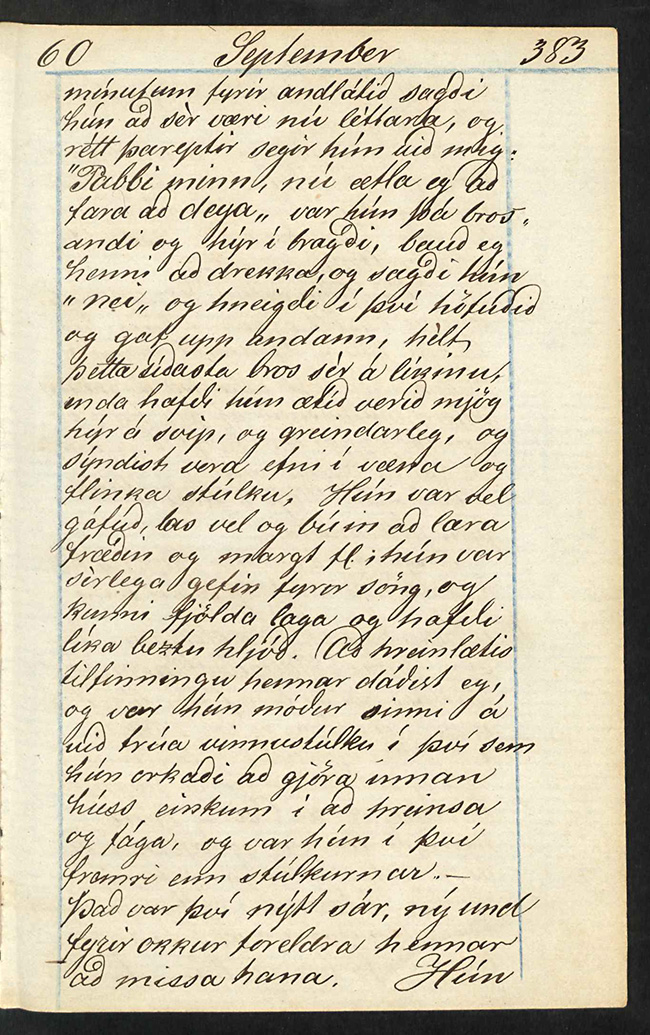 60 September 383
mínutum fyrir andlátið sagði
hún að sèr væri nú lèttara, og
rètt þareptir segir hún við mig:
"Pabbi minn, nú ætla eg að
fara að deya„ var hún þá bros„
andi og hýr í bragði, bauð eg
henni að drekka, og sagði hún
„nei„ og hneigði í því höfuðið
og gaf upp andann, hèlt
þetta síðasta bros sèr á líkinu,
enda hafði hún ætíð verið mjög
hýr á svip, og greindarleg, og
sýndist vera efni í væna og
flinka stúlku. Hún var vel
gáfuð, las vel og búin að læra
fræðin og margt fl.; hún var
sèrlega gefin fyrir söng, og
kunni fjölda laga og hafði
líka beztu hljóð. Að hreinlætis
tilfinningu hennar dáðist eg,
og var hún móður sinni á
við trúa vinnustúlku í því sem
hún orkaði að gjöra innan
húss einkum í að hreinsa
og fága, og var hún í því
fremri enn stúlkurnar. –
Það var því nýtt sár, ný und
fyrir okkur foreldra hennar
að missa hana. Hún